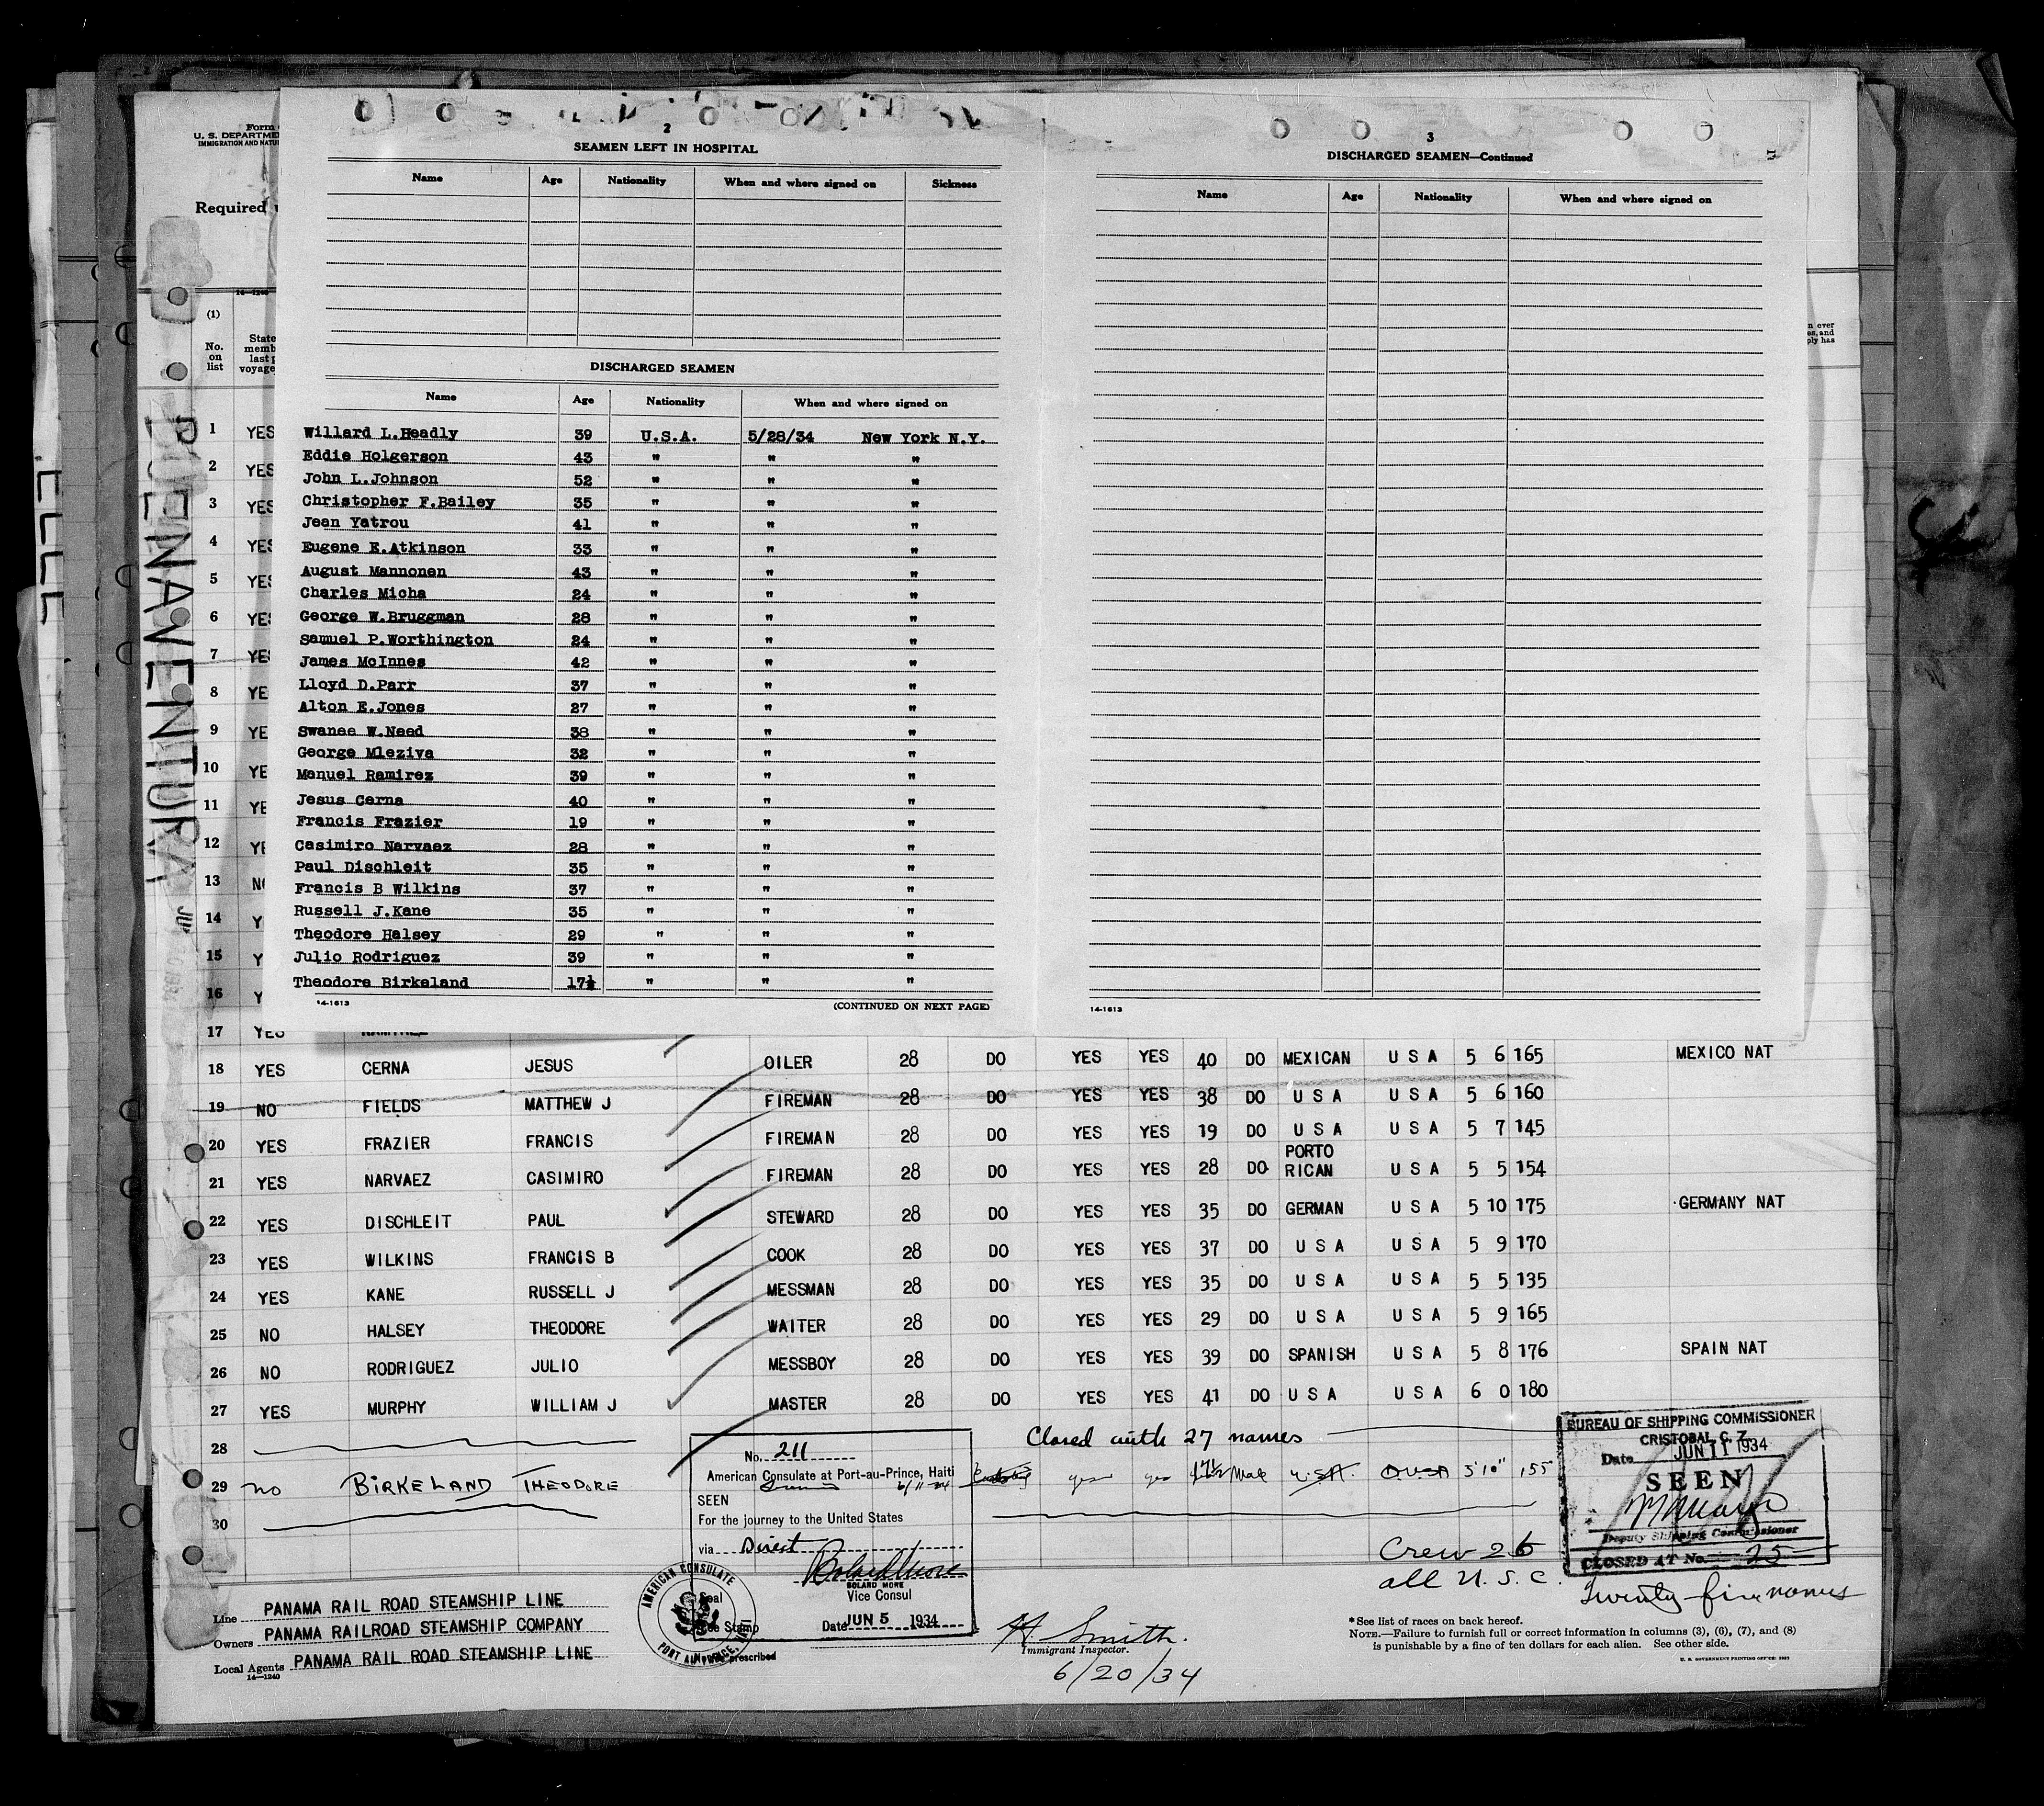 Form
U. S. DEPARTME
IMMIGRATION AND NATU
Required
14—1240
(1)
No. on list
State memb last p voyage
BUENAVENTURA
2
SEAMEN LEFT IN HOSPITAL
Name Age Nationality When and where signed on Sickness
DISCHARGED SEAMEN
Name Age Nationality When and where signed on
Willard L.Headly 39 U.S.A. 5/28/34 New York N.Y.
Eddie Holgerson 43 " " "
John L.Johnson 52 " " "
Christopher F.Bailey 35 " " "
Jean Yatrou 41 " " "
Eugene E.Atkinson 33 " " "
August Mannonen 43 " " "
Charles Micha 24 " " "
George W.Bruggman 28 " " "
Samuel P.Worthington 24 " " "
James McInnes 42 " " "
Lloyd D.Parr 37 " " "
Alton E.Jones 27 " " "
Swanee W.Need 38 " " "
George Mleziva 32 " " "
Manuel Ramirez 39 " " "
Jesus Cerna 40 " " "
Francis Frazier 19 " " "
Casimiro Narvaez 28 " " "
Paul Dischleit 35 " " "
Francis B Wilkins 37 " " "
Russell J.Kane 35 " " "
Theodore Halsey 29 " " "
Julio Rodriguez 39 " " "
Theodore Birkeland 17½ " " "
14-1613
(CONTINUED ON NEXT PAGE)
3
DISCHARGED SEAMEN—Continued
Name Age Nationality When and where signed on
14-1613
n over
es, and
ply has
1 YES
2 YES
3 YES
4 YES
5 YES
6 YES
7 YES
8 YE
9 YE
10 YE
11 YE
12 YE
13 NO
14 Y
15 Y
16 Y
17 YES
18 YES CERNA JESUS OILER 28 DO YES YES 40 DO MEXICAN U S A 5 6 165 MEXICO NAT
19 NO FIELDS MATTHEW J FIREMAN 28 DO YES YES 38 DO U S A U S A 5 6 160
20 YES FRAZIER FRANCIS FIREMAN 28 DO YES YES 19 DO U S A U S A 5 7 145
21 YES NARVAEZ CASIMIRO FIREMAN 28 DO YES YES 28 DO PORTO RICAN U S A 5 5 154
22 YES DISCHLEIT PAUL STEWARD 28 DO YES YES 35 DO GERMAN U S A 5 10 175 GERMANY NAT
23 YES WILKINS FRANCIS B COOK 28 DO YES YES 37 DO U S A U S A 5 9 170
24 YES KANE RUSSELL J MESSMAN 28 DO YES YES 35 DO U S A U S A 5 5 135
25 NO HALSEY THEODORE WAITER 28 DO YES YES 29 DO U S A U S A 5 9 165
26 NO RODRIGUEZ JULIO MESSBOY 28 DO YES YES 39 DO SPANISH U S A 5 8 176 SPAIN NAT
27 YES MURPHY WILLIAM J MASTER 28 DO YES YES 41 DO U S A U S A 6 0 180
28 Closed with 27 names
29 no BIRKELAND THEODORE 6/11/34 yes yes 17½ Male U.S.A. USA 5'10" 155
30
No. 211
American Consulate at Port-au-Prince, Haiti
SEEN
For the journey to the United States
via Direct
BOLARD MORE
Vice Consul
Date JUN 5 1934
Seal
Fee Stamp
prescribed
AMERICAN CONSULATE
PORT AU PRINCE, HAITI
BUREAU OF SHIPPING COMMISSIONER
CRISTOBAL, C. Z.
Date JUN 11 1934
SEEN
Deputy Shipping Commissioner
CLOSED AT No. 25
Twenty five names
Crew 26
all U. S. C.
Line PANAMA RAIL ROAD STEAMSHIP LINE
Owners PANAMA RAILROAD STEAMSHIP COMPANY
Local Agents PANAMA RAIL ROAD STEAMSHIP LINE
14—1240
H. Smith.
Immigrant Inspector.
6/20/34
*See list of races on back hereof.
NOTE.—Failure to furnish full or correct information in columns (3), (6), (7), and (8)
is punishable by a fine of ten dollars for each alien. See other side.
U. S. GOVERNMENT PRINTING OFFICE: 1933